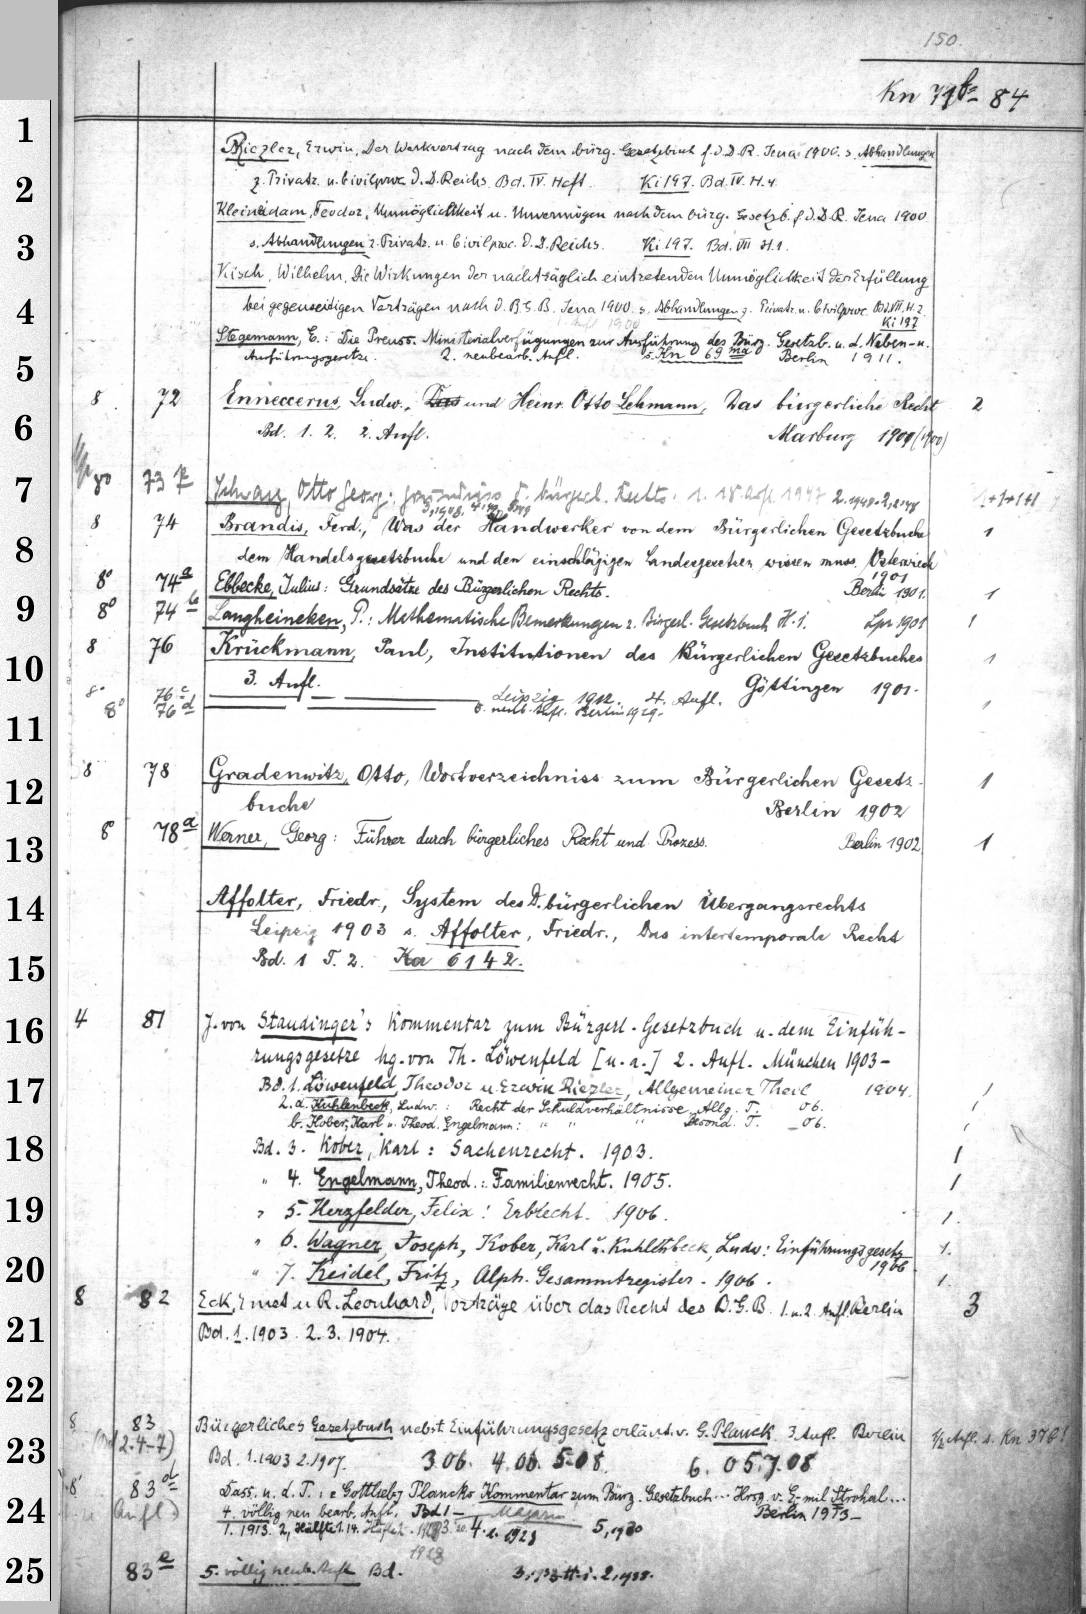 150.
Kn 71 84
1
Riezler, Erwin, Der Werkvertrag nach dem bürg. Gesetzbuch f. d. D. R. Jena 1900. s. Abhandlungen
2
z. Privatr. u. Civilproc. d. D. Reichs. Bd. IV. Heft. Ki 197. Bd. IV. H. 4.
Kleineidam, Feodor, Unmöglichkeit u. Unvermögen nach dem bürg. Gesetzb. f. d. D. R. Jena 1900.
3
s. Abhandlungen z. Privatr. u. Civilproc. d. D. Reichs. Ki 197. Bd. VII H. 1.
Kisch, Wilhelm, Die Wirkungen der nachträglich eintretenden Unmöglichkeit der Erfüllung
4
bei gegenseitigen Verträgen nach d. B. G. B. Jena 1900. s. Abhandlungen z. Privatr. u. Civilproc. Bd. VII. H. 2.
Ki 197
Stegemann, E.: Die Preuss. Ministerialverfügungen zur Ausführung des Bürg. Gesetzb. u. d. Neben- u.
5
Ausführungsgesetze. 2. neubearb. Aufl. s. Kn 69 ma Berlin 1911.
8 72 Enneccerus, Ludw., und Heinr. Otto Lehmann, Das bürgerliche Recht 2
6
Bd. 1. 2. 2. Aufl. Marburg 1901 (1900)
7
80 73 Schwarz, Otto Georg: Grundriss d. bürgerl. Rechts. 1. 18. Aufl. 1947 2. 1948. 1+1+1+1
8 74 Brandis, Ferd., Was der Handwerker von dem Bürgerlichen Gesetzbuche 1
8
dem Handelsgesetzbuche und den einschlägigen Landesgesetzen wissen muss. Osterwieck
1901
8° 74a Ebbecke, Julius: Grundsätze des Bürgerlichen Rechts. Berlin 1901. 1
9
8° 74b Langheineken, P.: Mathematische Bemerkungen z. Bürgerl. Gesetzbuch H. 1. Lpz 1901 1
8 76 Krückmann, Paul, Institutionen des Bürgerlichen Gesetzbuches 1
10
3. Aufl. Göttingen 1901.
8° 76c Leipzig 1912. 4. Aufl. 1
8° 76d 5. neub. Aufl. Berlin 1929.
11
8 78 Gradenwitz, Otto, Wortverzeichniss zum Bürgerlichen Gesetz- 1
12
buche Berlin 1902
8° 78a Werner, Georg: Führer durch bürgerliches Recht und Prozess. Berlin 1902 1
13
14
Affolter, Friedr., System des D. bürgerlichen Übergangsrechts
Leipzig 1903 s. Affolter, Friedr., Das intertemporale Recht
15
Bd. 1 T. 2. Ka 6142.
16
4 81 J. von Staudinger's Kommentar zum Bürgerl. Gesetzbuch u. dem Einfüh-
rungsgesetze hg. von Th. Löwenfeld [u. a.] 2. Aufl. München 1903-
17
Bd. 1. Löwenfeld, Theodor u. Erwin Riezler, Allgemeiner Theil 1904. 1
2. a. Kuhlenbeck, Ludw.: Recht der Schuldverhältnisse. Allg. T. 06. 1
b. Kober, Karl u. Theod. Engelmann: " " " Besond. T. 06. 1
18
Bd. 3. Kober, Karl: Sachenrecht. 1903. 1
" 4. Engelmann, Theod.: Familienrecht. 1905. 1
19
" 5. Herzfelder, Felix: Erbrecht. 1906. 1.
" 6. Wagner, Joseph, Kober, Karl u. Kuhlenbeck, Ludw: Einführungsgesetz 1.
1906
20
" 7. Keidel, Fritz, Alph. Gesammtregister. 1906. 1.
8 82 Eck, Ernst u. R. Leonhard, Vorträge über das Recht des B.G.B. 1. u. 2. Aufl. Berlin 3
21
Bd. 1. 1903. 2. 3. 1904.
22
8 83 Bürgerliches Gesetzbuch nebst Einführungsgesetz erläut. v. G. Planck 3. Aufl. Berlin 1/2 Aufl. s. Kn
23
2-4-7) Bd. 1. 1903 2. 1907. 3.06. 4.06. 5.08. 6. 05. 7.08
8 83d Dass. u. d. T.: Gottlieb Plancks Kommentar zum Bürg. Gesetzbuch... Hrsg. v. Emil Strohal...
24
Aufl.) 4. völlig neu bearb. Aufl. Bd. 1- Berlin 1913-
1. 1913. 2, Hälfte 1. 14. 4. 1928 5, 1930
1928
25
83e 5. völlig neub. Aufl. Bd.